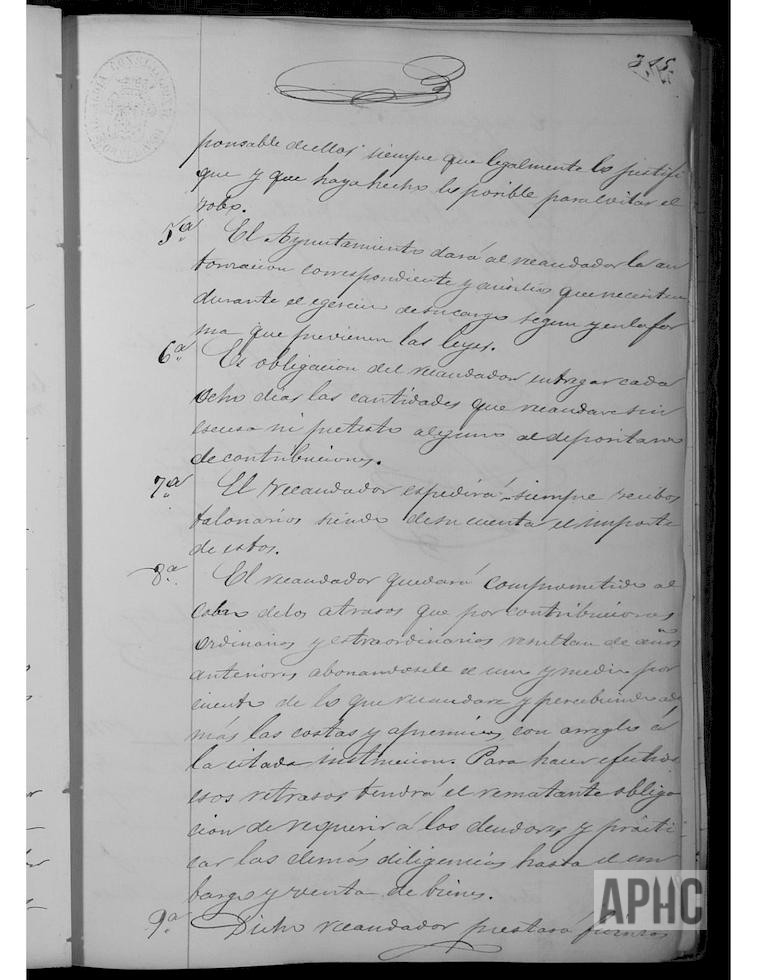 315
ponsable de ellos siempre que legalmente lo justifi
que y que haya hecho lo posible para evitar el
robo.
5ª El Ayuntamiento dará al recaudador la au
torizacion correspondiente y ausilios que necesiten
durante el egercicio de su cargo segun y en la for
ma que previenen las leyes.
6ª Es obligacion del recaudador entregar cada
ocho dias las cantidades que recaudare sin
escusa ni pretesto alguno al depositario
de contribuciones.
7ª El recaudador espedirá siempre recibos
talonarios siendo de su cuenta el importe
de estos.
8ª El recaudador quedará comprometido al
cobro de los atrasos que por contribuciones
ordinarias y estraordinarias resultan de años
anteriores abonandosele el uno y medio por
ciento de lo que recaudare y percibiendo ade
más las costas y apremios con arreglo á
la citada instruccion. Para hacer efectivos
esos retrasos tendrá el rematante obliga
cion de requerir á los deudores y prácti
car las demás diligencias hasta el em
bargo y venta de bienes.
9ª Dicho recaudador prestará fianzas
APHC